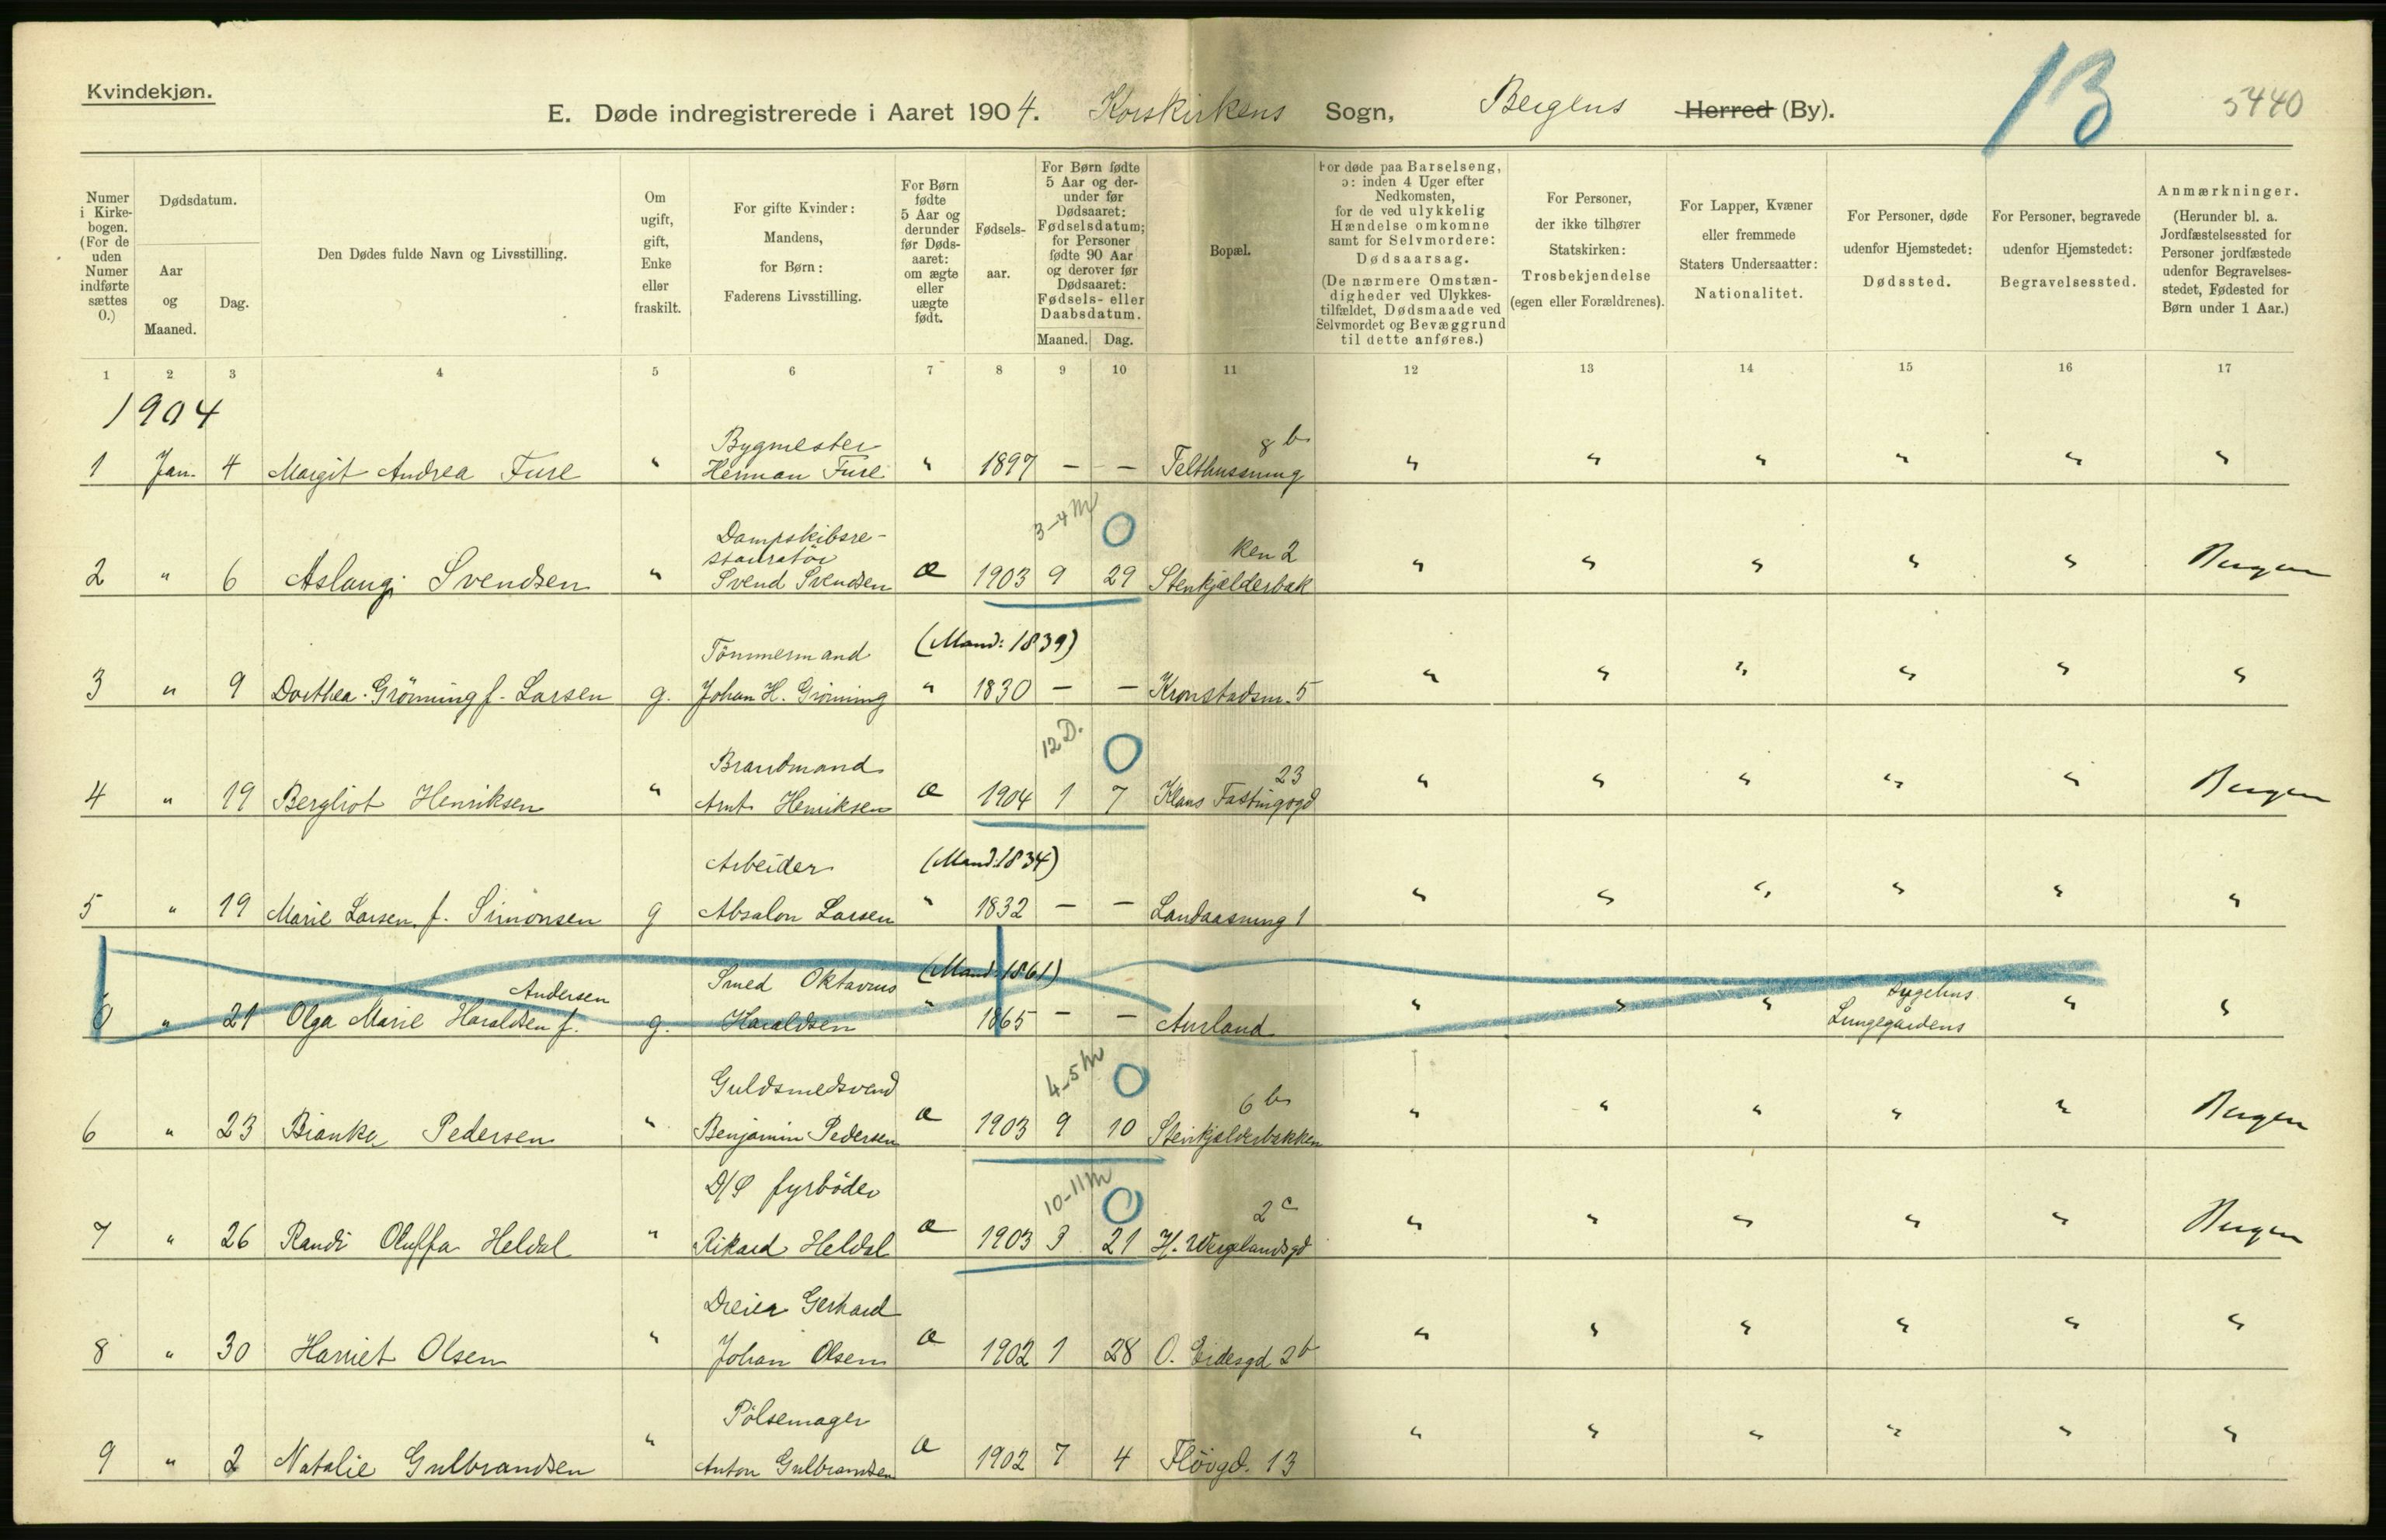 Kvindekjøn.
E. Døde indregistrerede i Aaret 1904. Korskirkens Sogn, Bergens Herred (By). 13 5440
Numer i Kirke-bogen. (For de uden Numer indførte sættes 0.)
Dødsdatum.
Aar og Maaned.
Dag.
Den Dødes fulde Navn og Livsstilling.
Om ugift, gift, Enke eller fraskilt.
For gifte Kvinder: Mandens, for Børn: Faderens Livsstilling.
For Børn fødte 5 Aar og derunder før Døds-aaret: om ægte eller uægte født.
Fødsels-aar.
For Børn fødte 5 Aar og der-under før Dødsaaret: Fødselsdatum; for Personer fødte 90 Aar og derover før Dødsaaret: Fødsels- eller Daabsdatum.
Maaned. Dag.
Bopæl.
For døde paa Barselseng, ɔ: inden 4 Uger efter Nedkomsten, for de ved ulykkelig Hændelse omkomne samt for Selvmordere: Dødsaarsag. (De nærmere Omstæn-digheder ved Ulykkes-tilfældet, Dødsmaade ved Selvmordet og Bevæggrund til dette anføres.)
For Personer, der ikke tilhører Statskirken: Trosbekjendelse (egen eller Forældrenes).
For Lapper, Kvæner eller fremmede Staters Undersaatter: Nationalitet.
For Personer, døde udenfor Hjemstedet: Dødssted.
For Personer, begravede udenfor Hjemstedet: Begravelsessted.
Anmærkninger. (Herunder bl. a. Jordfæstelsessted for Personer jordfæstede udenfor Begravelses-stedet, Fødested for Børn under 1 Aar.)
1 2 3 4 5 6 7 8 9 10 11 12 13 14 15 16 17
1904
Bygmester 8 b
1 Jan. 4 Margit Andrea Fure " Herman Fure " 1897 – – Telthussmug " " " " " "
Dampskibsre- 3-4 M O
stauratør ken 2
2 " 6 Aslaug Svendsen " Svend Svendsen æ 1903 9 29 Stenkjelderbak " " " " " Bergen
Tömmermand (Mand: 1839)
3 " 9 Dorthea Grönning f. Larsen g. Johan H. Grönning " 1830 – – Kronstadsm. 5 " " " " " "
Brandmand 12 D. O 23
4 " 19 Bergliot Henriksen " Arnt Henriksen æ 1904 1 7 Klaus Fastingsgd " " " " " Bergen
Arbeider (Mand: 1834)
5 " 19 Marie Larsen f. Simonsen g Absalon Larsen " 1832 – – Landaasmug 1 " " " " " "
Andersen Smed Oktavius (Mand: 1861) Sygehus
0 " 21 Olga Marie Haraldsen f. g. Haraldsen " 1865 – – Aurland " " " Lungegårdens " "
Guldsmedsvend 4-5 M O 6 b
6 " 23 Bianka Pedersen " Benjamin Pedersen æ 1903 9 10 Stenkjelderbakken " " " " " Bergen
D/S fyrböder 10-11 M O 2 c
7 " 26 Randi Oluffa Heldal " Rikard Heldal æ 1903 3 21 H. Wergelandsgd " " " " " Bergen
Dreier Gerhard
8 " 30 Harriet Olsen " Johan Olsen æ 1902 1 28 O. Eidesgd 2 b " " " " " "
Pölsemager
9 " 2 Natalie Gulbrandsen " Anton Gulbrandsen æ 1902 7 4 Flöigd. 13 " " " " " "